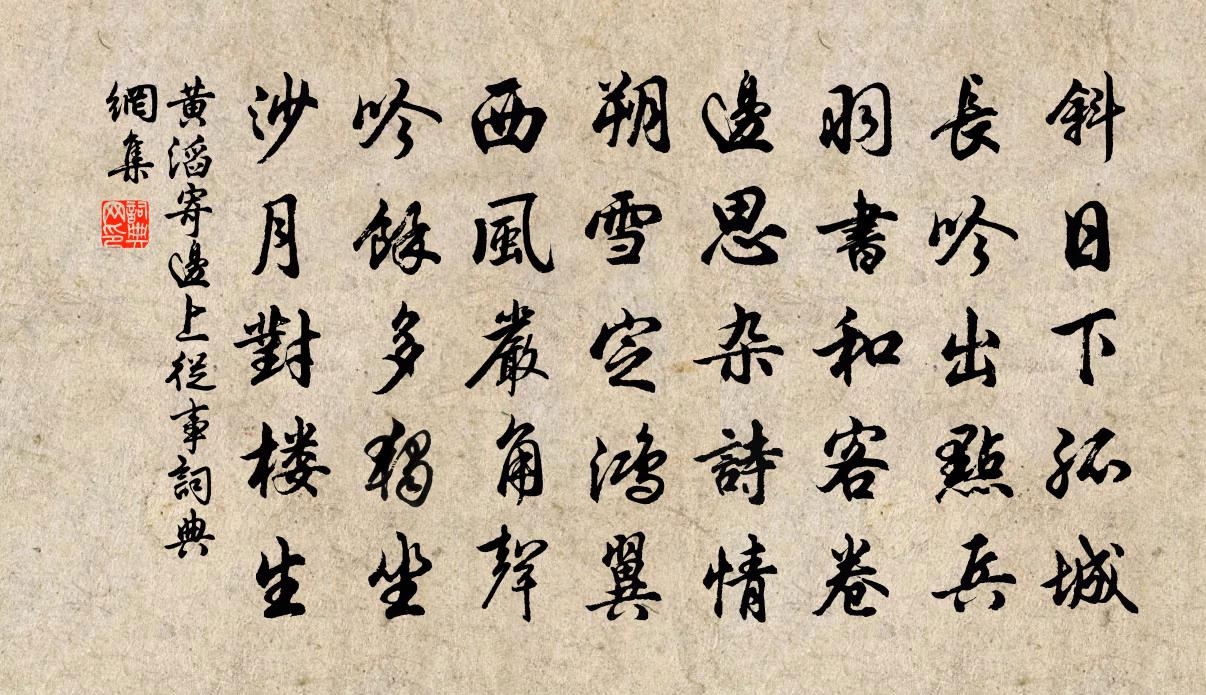 斜日下孤城
長吟出點兵
羽書和客卷
邊思杂詩情
朔雪定鴻翼
西風嚴角聲
吟餘多獨坐
沙月對楼生
黃滔寄邊上從事詞典
網集
詞典
网印